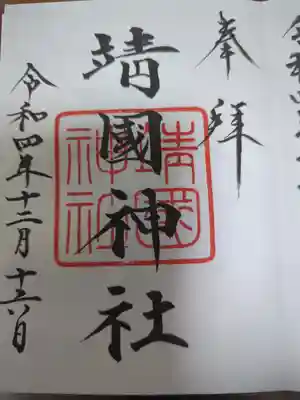 奉拝
靖國神社
靖國神社
令和四年十二月十六日